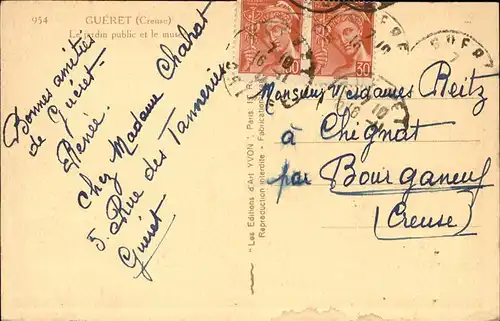 954 GUÉRET (Creuse)
Le jardin public et le musée
Bonnes amitiés
de Guéret-
Renée.
Chez Madame Chahat
5. Rue des Tanneries
Guéret
"Les Editions d'Art YVON" Paris
Reproduction interdite - Fabrication
30
30
GUERET
Monsieur Mesdames Reitz
à Chignat
par Bourganeuf
(Creuse)